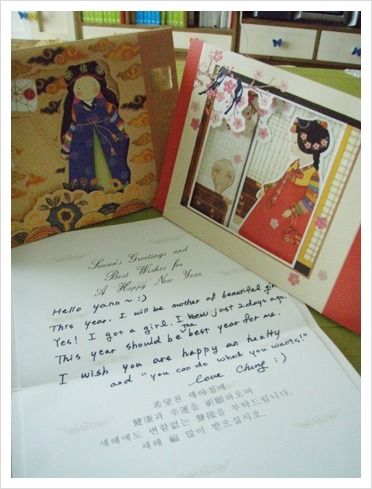 Season's Greetings and
Best Wishes for
A Happy New Year
Hello yann ~ :)
This year, I will be mother of beautiful girl
Yes! I got a girl. I knew just 2days ago.
This year should be The best year for me.
I wish you are happy an healty
and "you can do which you wants!"
love Chey :)
希望찬 새아침에
健康과 幸運을 祈願하오며
새해에도 변함없는 聲援을 부탁드립니다.
새해 福 많이 받으십시오.